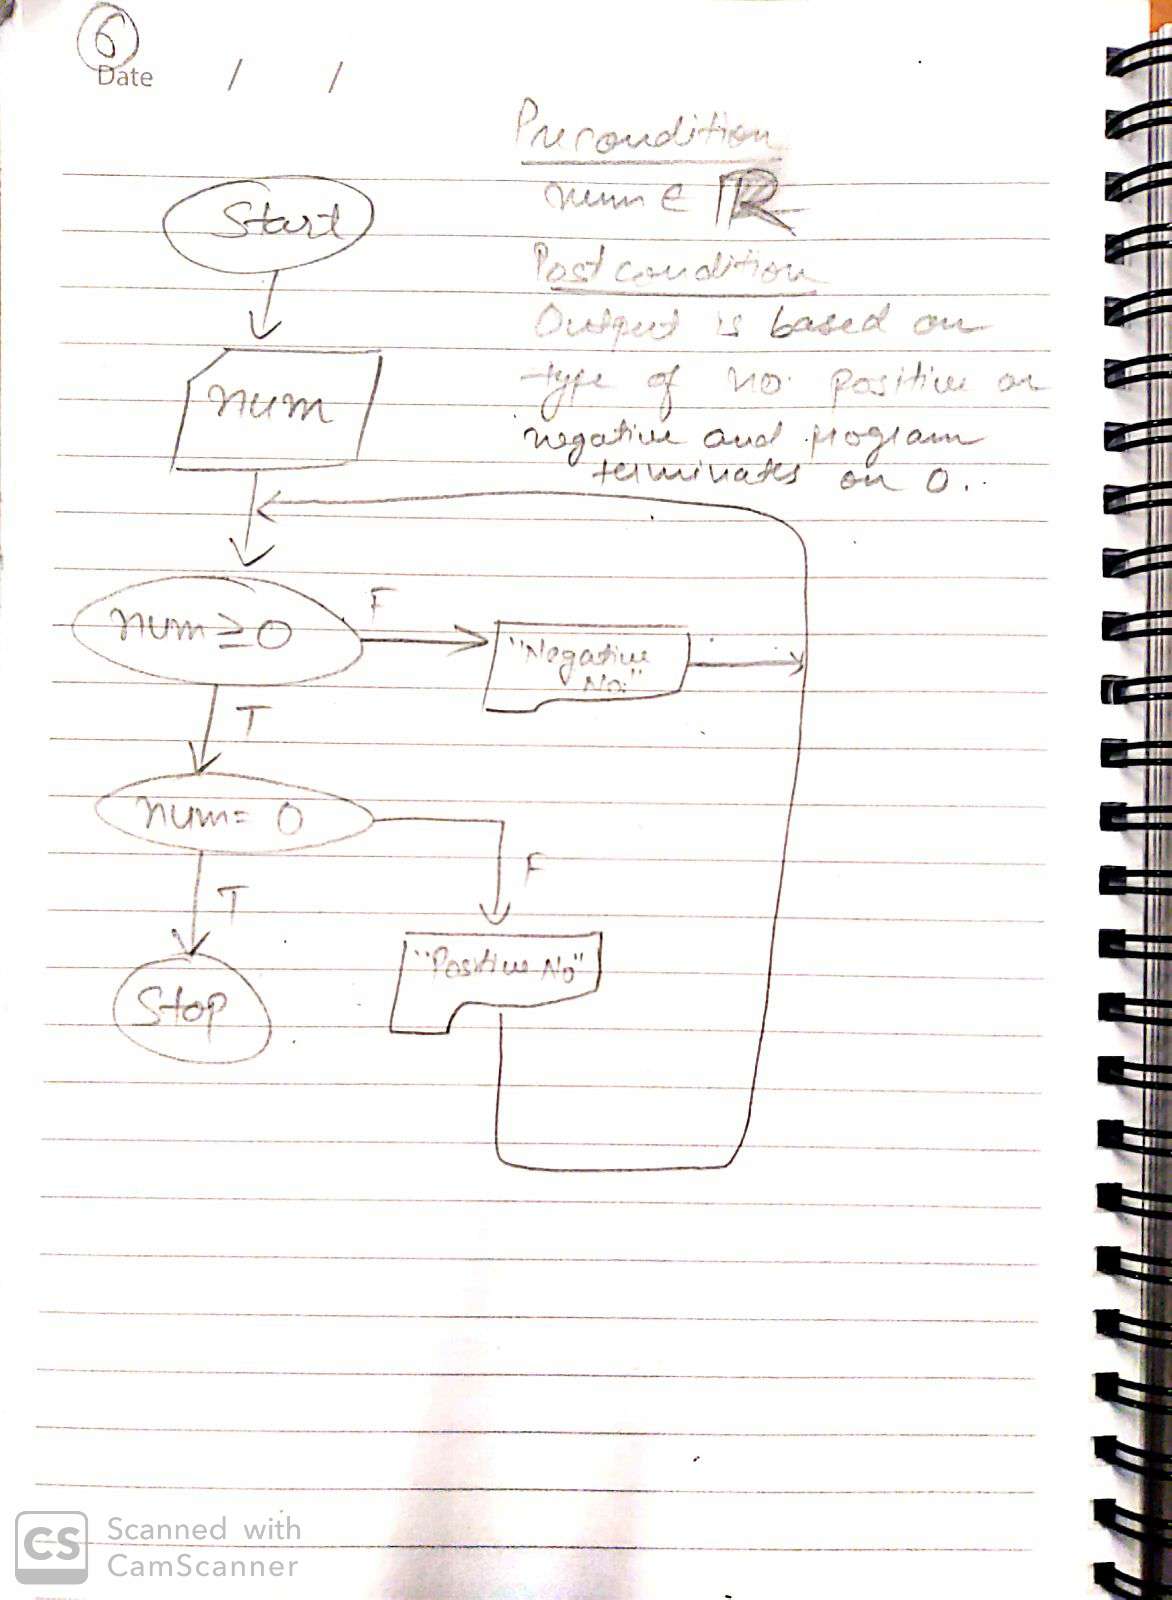 6
Date / /
Precondition
num ∈ ℝ
Post condition
Output is based on
type of no. positive or
negative and program
terminates on 0..
Start
num
num ≥ 0
F
"Negative
No."
T
num = 0
F
T
"Positive No"
Stop
CS
Scanned with
CamScanner